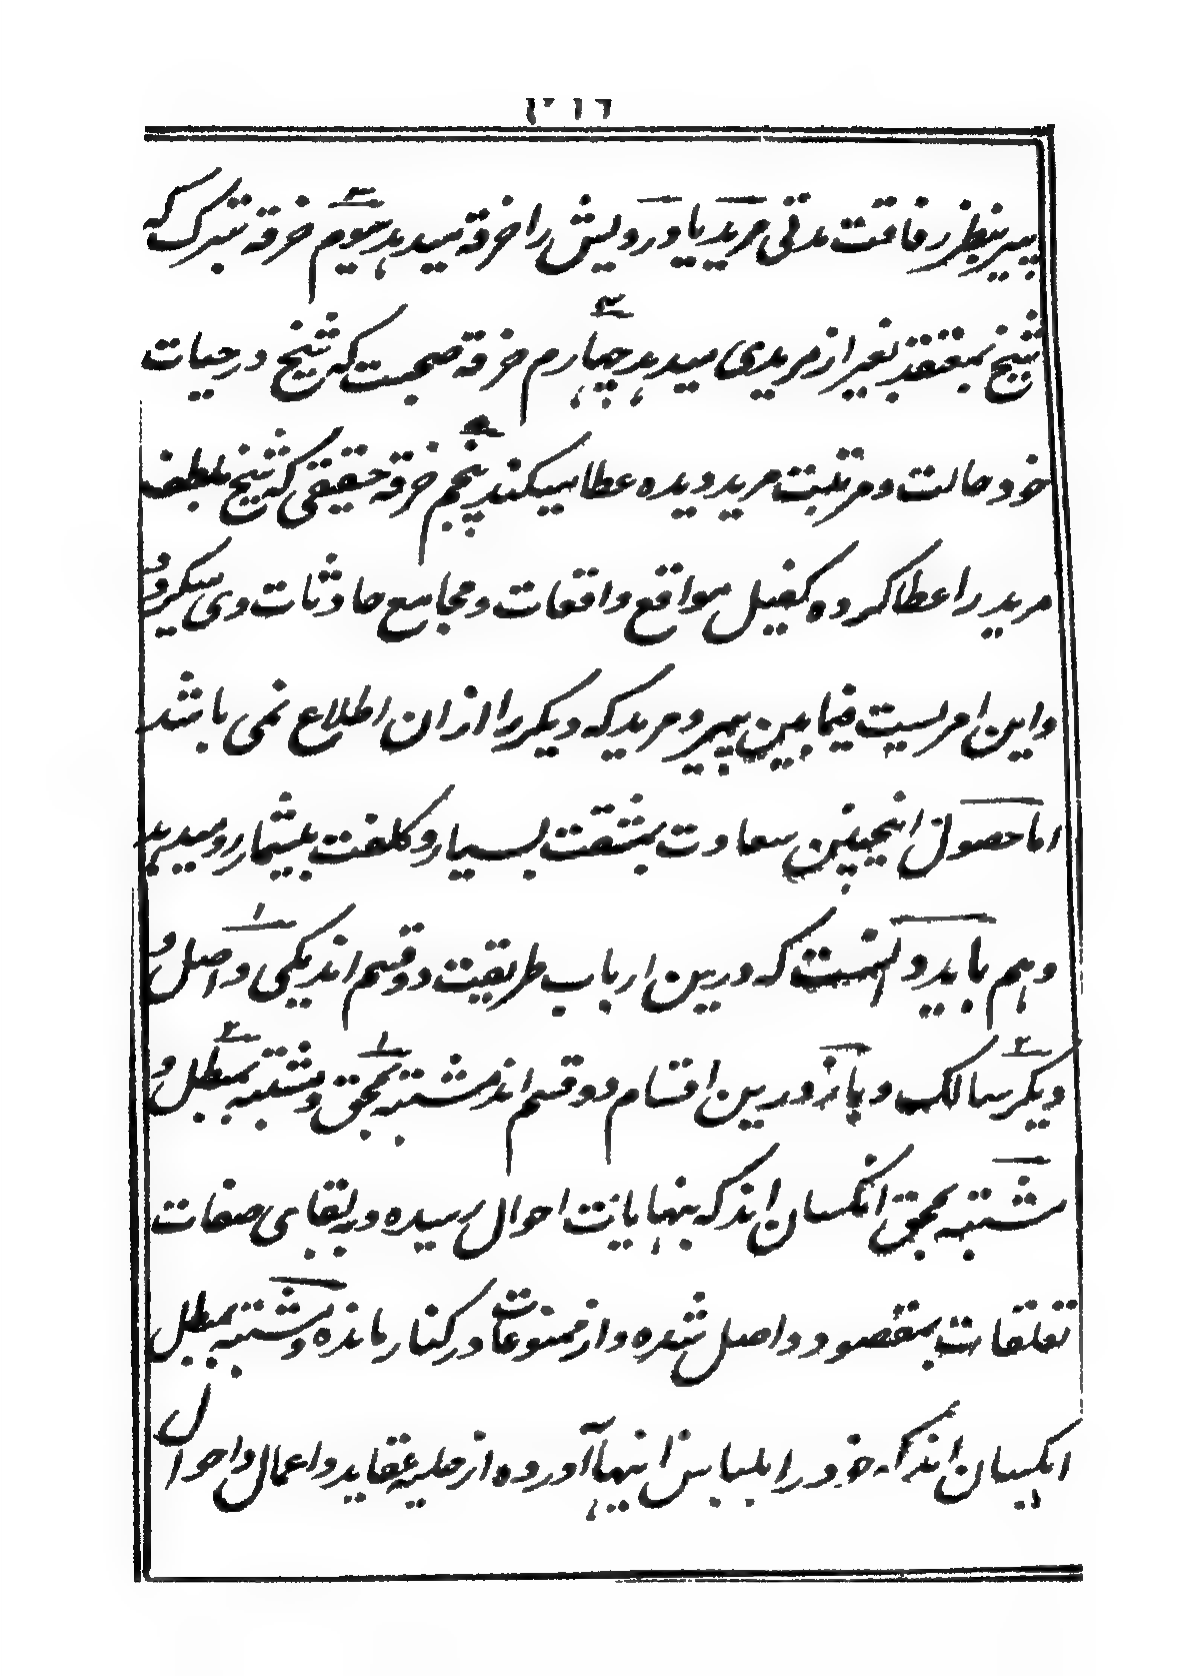 ۳۱۶
پیر بنظر رفاقت مدتی مرید یا درویش را خرقه میدہد سیوم خرقه تبرک که
شیخ بمعتقد بغیر از مریدی میدہد چہارم خرقه صحبت که شیخ در حیات
خود حالت و مرتبت مرید دیده عطا میکند پنجم خرقه حقیقی که شیخ بلطف
مرید را عطا کرده کفیل مواقع واقعات و مجامع حادثات وی میگردد
و این امریست فیما بین پیر و مرید که دیگر را ازان اطلاع نمی باشد
اما حصول اینچنین سعادت بمشقت بسیار و کلفت بیشمار رو میدہد
و ہم باید دانست که درین ارباب طریقت دو قسم اند یکی واصل و
دیگر سالک و باز درین اقسام دو قسم اند متشبه بمحق و متشبه بمبطل و
متشبه بمحق انکسان اند که بنہایات احوال رسیده در بقای صفات
تعلقات بمقصود واصل شده و از ممنوعات در کنار مانده و متشبه بمبطل
انکسان اند که خود را بلباس اینہا آورده از حلیه عقاید و اعمال و احوال